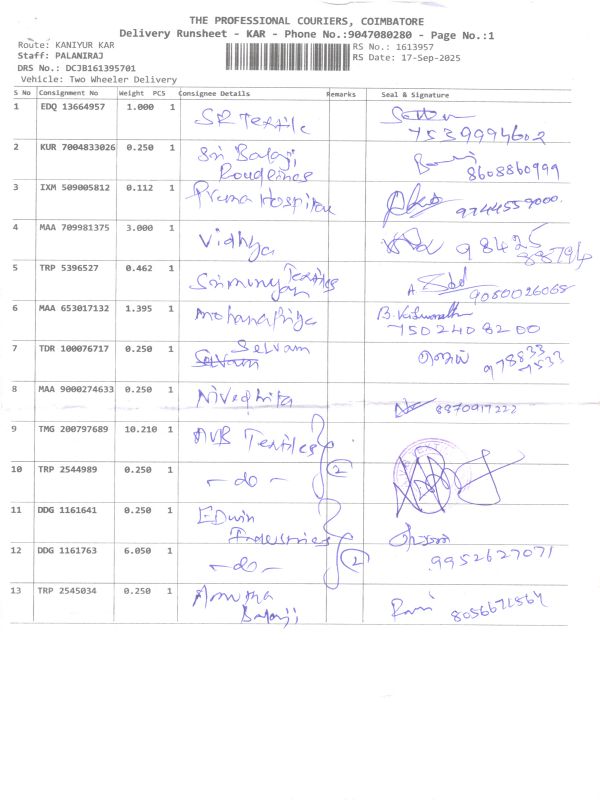 THE PROFESSIONAL COURIERS, COIMBATORE
Delivery Runsheet - KAR - Phone No.:9047080280 - Page No.:1
Route: KANIYUR KAR RS No.: 1613957
Staff: PALANIRAJ RS Date: 17-Sep-2025
DRS No.: DCJB161395701
Vehicle: Two Wheeler Delivery
S No Consignment No Weight PCS Consignee Details Remarks Seal & Signature
1 EDQ 13664957 1.000 1 SR Textile
7539994602
2 KUR 7004833026 0.250 1 Sri Balaji
8608860999
3 IXM 509005812 0.112 1 Hospital
9744559000.
4 MAA 709981375 3.000 1 Vidhya 98425
888794
5 TRP 5396527 0.462 1 Textiles
9080026068
6 MAA 653017132 1.395 1 Mohanapriya
7502408200
7 TDR 100076717 0.250 1 Selvam
Selvam 978833
7533
8 MAA 9000274633 0.250 1 Nivedhita 8870917222
9 TMG 200797689 10.210 1 AVB Textiles
10 TRP 2544989 0.250 1 - do - 2
11 DDG 1161641 0.250 1 EDwin
Industries
12 DDG 1161763 6.050 1 - do - 2 9952627071
13 TRP 2545034 0.250 1 Ravi
Balaji